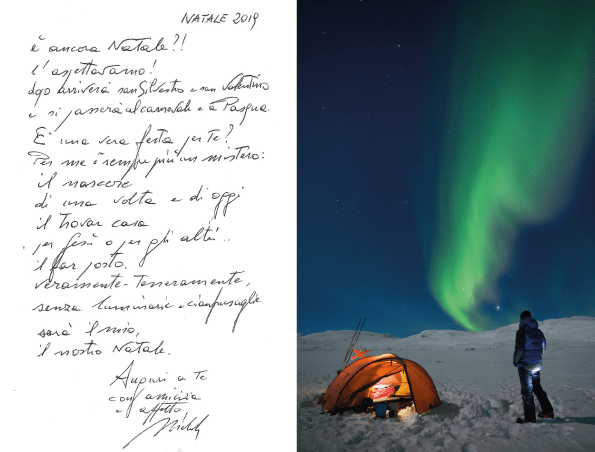 NATALE 2019
è ancora Natale?!
l'aspettavamo!
dopo arriverà san Silvestro e san Valentino
e si passerà al carnevale e a Pasqua.
È una vera festa per te?
Per me è sempre più un mistero:
il nascere
di una volta e di oggi
il trovar casa
per Gesù o per gli altri..
il far posto.
veramente - teneramente,
senza luminarie e cianfrusaglie
sarà il mio,
il nostro Natale.
Auguri a te
con amicizia
e affetto